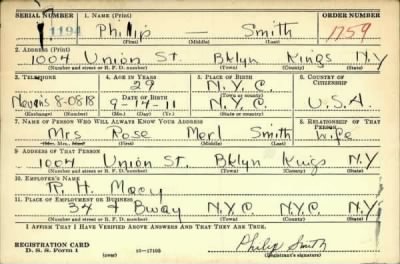 SERIAL NUMBER 1. NAME (Print) ORDER NUMBER
1194 Phillip — Smith 1759
(First) (Middle) (Last)
2. ADDRESS (Print)
1004 Union St. Bklyn Kings N.Y
(Number and street or R. F. D. number) (Town) (County) (State)
3. TELEPHONE 4. AGE IN YEARS 5. PLACE OF BIRTH 6. COUNTRY OF CITIZENSHIP
29 N.Y.C.
Nevins 8-0818 DATE OF BIRTH (Town or county) U.S.A.
9-14-11 N.Y.
(Exchange) (Number) (Mo.) (Day) (Yr.) (State or country)
7. NAME OF PERSON WHO WILL ALWAYS KNOW YOUR ADDRESS 8. RELATIONSHIP OF THAT PERSON
Mrs Rose Smith Wife
(Mr., Mrs., Miss) (First) (Middle) (Last)
9. ADDRESS OF THAT PERSON
1004 Union St. Bklyn Kings N.Y
(Number and street or R. F. D. number) (Town) (County) (State)
10. EMPLOYER'S NAME
R. H. Macy
11. PLACE OF EMPLOYMENT OR BUSINESS
34 & Bway N.Y.C. N.Y.C. N.Y.
(Number and street or R. F. D. number) (Town) (County) (State)
I AFFIRM THAT I HAVE VERIFIED ABOVE ANSWERS AND THAT THEY ARE TRUE.
REGISTRATION CARD
D. S. S. FORM 1 16-17105 Philip Smith
(Registrant's signature)